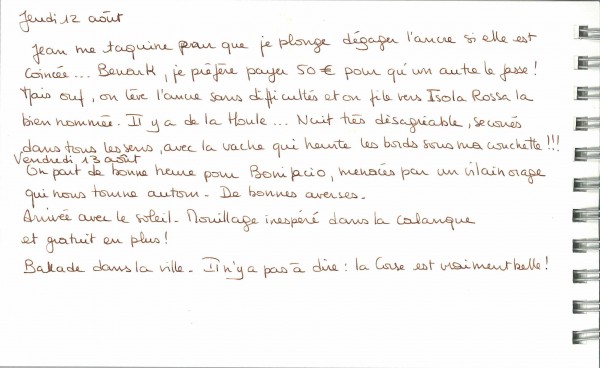 Jeudi 12 août
Jean me taquine pour que je plonge dégager l'ancre si elle est
coincée... Beuark, je préfère payer 50 € pour qu'un autre le fasse!
Mais ouf, on lève l'ancre sans difficultés et on file vers Isola Rossa la
bien nommée. Il y a de la Houle... Nuit très désagréable, secoués
dans tous les sens, avec la vache qui heurte les bords sous ma couchette!!!
Vendredi 13 août
On part de bonne heure pour Bonifacio, menacés par un vilain orage
qui nous tourne autour. De bonnes averses.
Arrivée avec le soleil. Mouillage inespéré dans la calanque
et gratuit en plus!
Balade dans la ville. Il n'y a pas à dire : la Corse est vraiment belle!